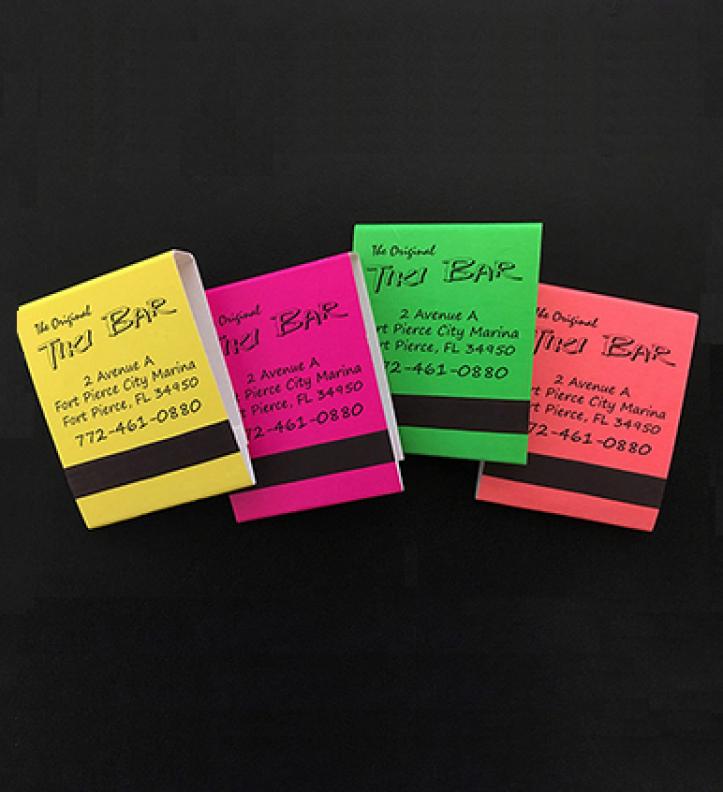 The Original
TIKI BAR
2 Avenue A
Fort Pierce City Marina
Fort Pierce, FL 34950
772-461-0880
Original
TIKI BAR
2 Avenue A
Pierce City Marina
Pierce, FL 34950
72-461-0880
The Original
TIKI BAR
2 Avenue A
rt Pierce City Marina
rt Pierce, FL 34950
772-461-0880
The Original
TIKI BAR
2 Avenue A
rt Pierce City Marina
rt Pierce, FL 34950
772-461-0880